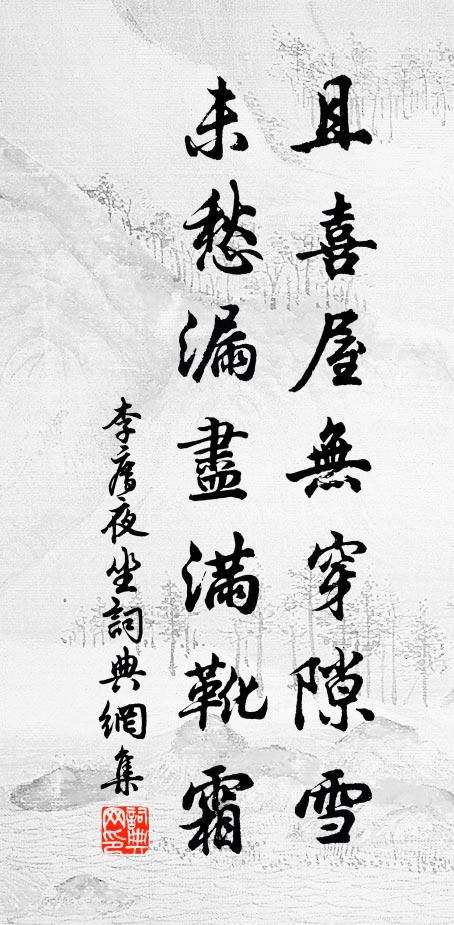 且喜屋無穿隙雪
未愁漏盡滿靴霜
李廌夜坐詞典網集
詞典网印